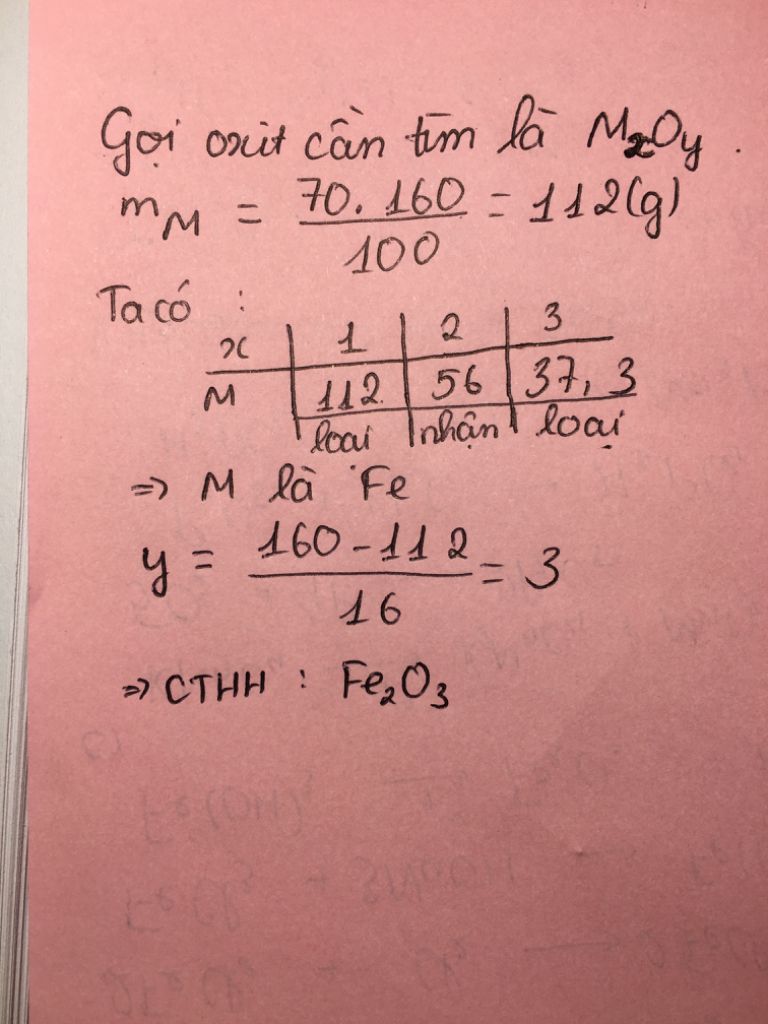 Gọi oxit cần tìm là MxOy.
mM = 70.160/100 = 112(g)
Ta có :
x | 1 | 2 | 3
M | 112 | 56 | 37,3
loại | nhận | loại
=> M là Fe
y = 160-112/16 = 3
=> CTHH : Fe2O3